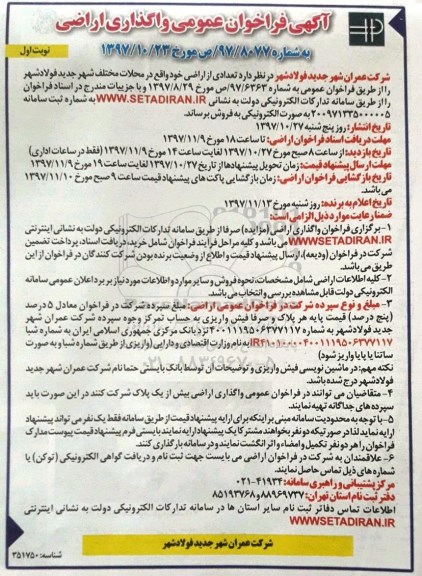 آگهی فراخوان عمومی واگذاری اراضی
به شماره ۹۷/۸۰۷۷/ص مورخ ۱۳۹۷/۱۰/۲۳
نوبت اول
شرکت عمران شهر جدید فولادشهر در نظر دارد تعدادی از اراضی خود واقع در محلات مختلف شهر جدید فولادشهر
را از طریق فراخوان عمومی به شماره ۹۷/۶۳۶۳/ص مورخ ۱۳۹۷/۸/۲۹ و با جزییات مندرج در اسناد فراخوان
را از طریق سامانه تدارکات الکترونیکی دولت به نشانی WWW.SETADIRAN.IR به شماره ثبت سامانه
۲۰۰۹۷۱۳۳۵۰۰۰۰۰۵ به صورت الکترونیکی به فروش برساند.
تاریخ انتشار: روز پنج شنبه ۱۳۹۷/۱۰/۲۷
مهلت دریافت اسناد فراخوان اراضی: تا ساعت ۱۸ مورخ ۱۳۹۷/۱۱/۹
تاریخ بازدید: از ساعت ۸ صبح مورخ ۱۳۹۷/۱۰/۲۷ لغایت ساعت ۱۴ مورخ ۱۳۹۷/۱۱/۹ (فقط در ساعات اداری)
مهلت ارسال پیشنهاد قیمت: زمان تحویل پیشنهادها از تاریخ ۱۳۹۷/۱۰/۲۷ لغایت ساعت ۱۹ مورخ ۱۳۹۷/۱۱/۹
تاریخ بازگشایی فراخوان اراضی: زمان بازگشایی پاکت های پیشنهاد قیمت ساعت ۹ صبح مورخ ۱۳۹۷/۱۱/۱۰
می باشد.
تاریخ اعلام به برنده: روز شنبه مورخ ۱۳۹۷/۱۱/۱۳
ضمنا رعایت موارد ذیل الزامی است:
۱- برگزاری فراخوان واگذاری اراضی (مزایده) صرفا از طریق سامانه تدارکات الکترونیکی دولت به نشانی اینترنتی
WWW.SETADIRAN.IR می باشد و کلیه مراحل فرآیند فراخوان شامل خرید، دریافت اسناد، پرداخت تضمین
شرکت در فراخوان (ودیعه)، ارسال پیشنهاد قیمت و اطلاع از وضعیت برنده بودن شرکت کنندگان در فراخوان از این
طریق می باشد.
۲- کلیه اطلاعات اراضی شامل مشخصات، نحوه فروش و سایر موارد و اطلاعات مورد نیاز بر برد اعلان عمومی سامانه
الکترونیکی دولت قابل مشاهده بررسی و انتخاب می باشد.
۳- مبلغ و نوع سپرده شرکت در فراخوان عمومی اراضی: مبلغ سپرده شرکت در فراخوان معادل ۵ درصد
(پنج درصد) قیمت پایه هر پلاک و صرفا فیش واریزی به حساب تمرکز وجوه سپرده شرکت عمران شهر
جدید فولادشهر به شماره ۴۰۰۱۱۱۹۵۰۶۳۷۷۱۱۷ نزد بانک مرکزی جمهوری اسلامی ایران به شماره شبا
به نام وزارت اقتصادی و دارایی (واریزی از طریق شماره شبا و به صورت
ساتنا یا پایا واریز شود)
نکته مهم: در ماشین نویسی فیش واریزی و توضیحات آن توسط بانک بایستی حتما نام شرکت عمران شهر جدید
فولادشهر درج شده باشد.
۴- متقاضیان می توانند در فراخوان عمومی واگذاری اراضی بیش از یک پلاک شرکت کنند در این صورت باید
سپرده های جداگانه تهیه نمایند.
۵- با توجه به محدودیت سامانه مبنی بر اینکه برای ارایه پیشنهاد قیمت از طریق سامانه فقط یک نفر می تواند پیشنهاد
ارایه نماید لذا در صورتیکه دو نفر بخواهند مشترکا یک پیشنهاد ارایه نمایند بایستی فرم پیشنهاد قیمت پیوست مدارک
فراخوان را هر دو نفر تکمیل و امضاء و اثر انگشت نمایند و در سامانه بارگذاری کنند.
۶- علاقمندان به شرکت در فراخوان اراضی می بایست جهت ثبت نام و دریافت گواهی الکترونیکی (توکن) با
شماره های ذیل تماس حاصل نمایند.
مرکز پشتیبانی و راهبری سامانه: ۰۲۱-۴۱۹۳۴
دفتر ثبت نام استان تهران: ۸۸۹۶۹۷۳۷ و ۸۵۱۹۳۷۶۸
اطلاعات تماس دفاتر ثبت نام سایر استان ها در سامانه تدارکات الکترونیکی دولت به نشانی اینترنتی
WWW.SETADIRAN.IR
شرکت عمران شهر جدید فولادشهر
شناسه: ۳۵۱۷۵۰